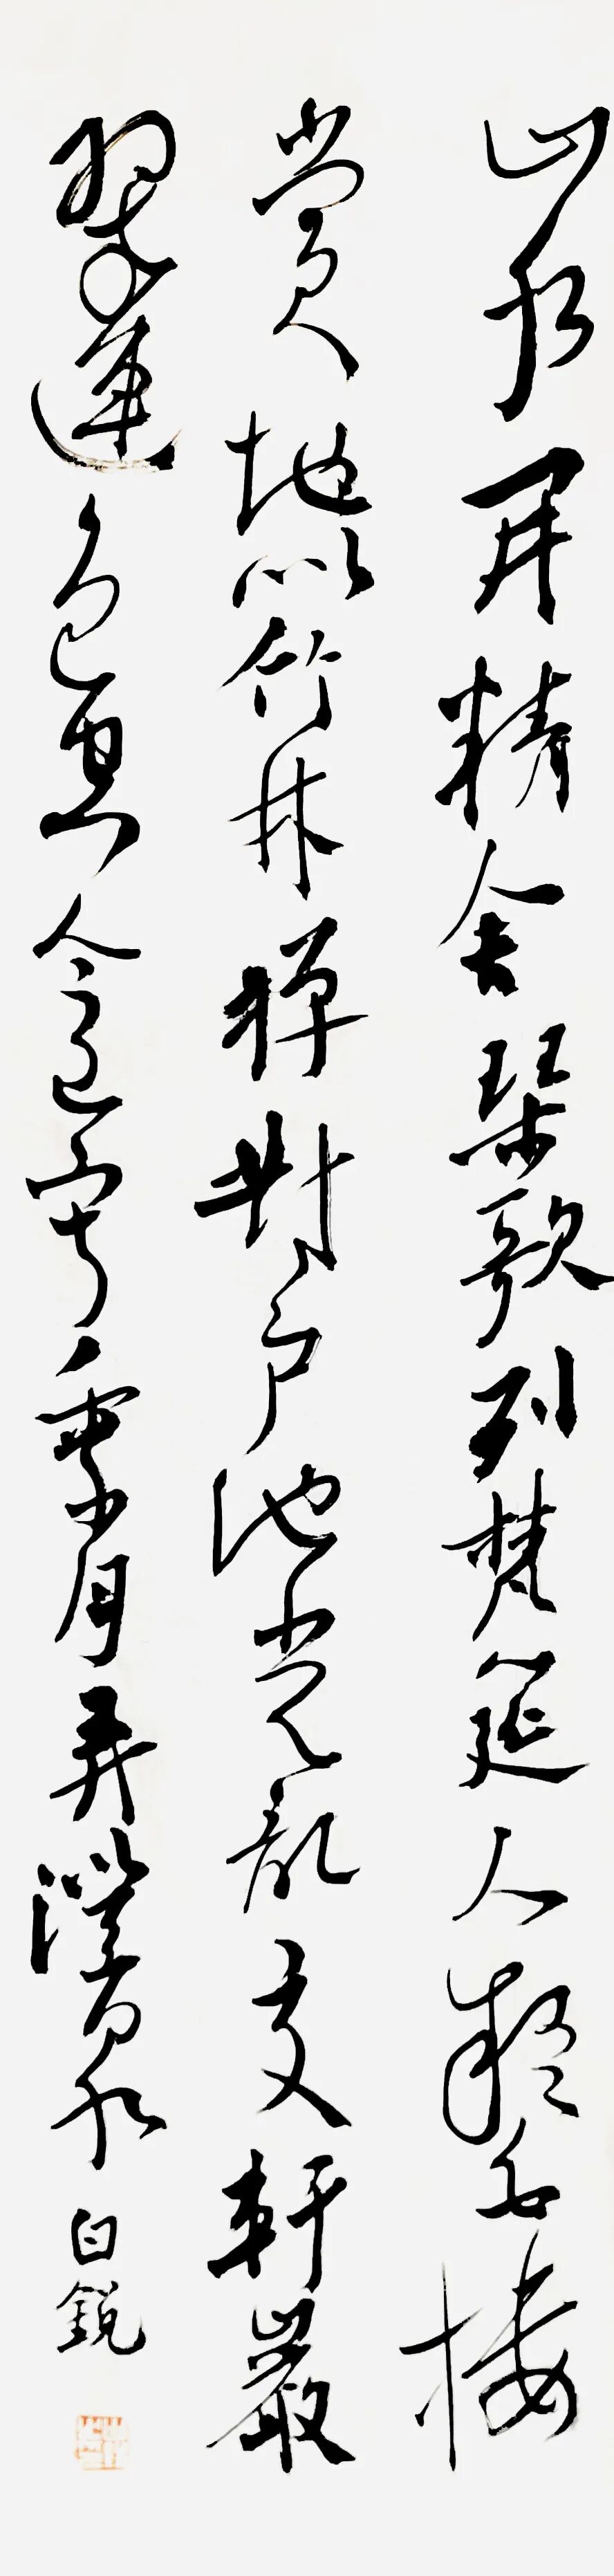 山水開精舍琴歌列梵筵人疑白樓
賞地似竹林禪對戶池光亂交軒巖
翠連色空今已寂乘月弄澄泉 白銳